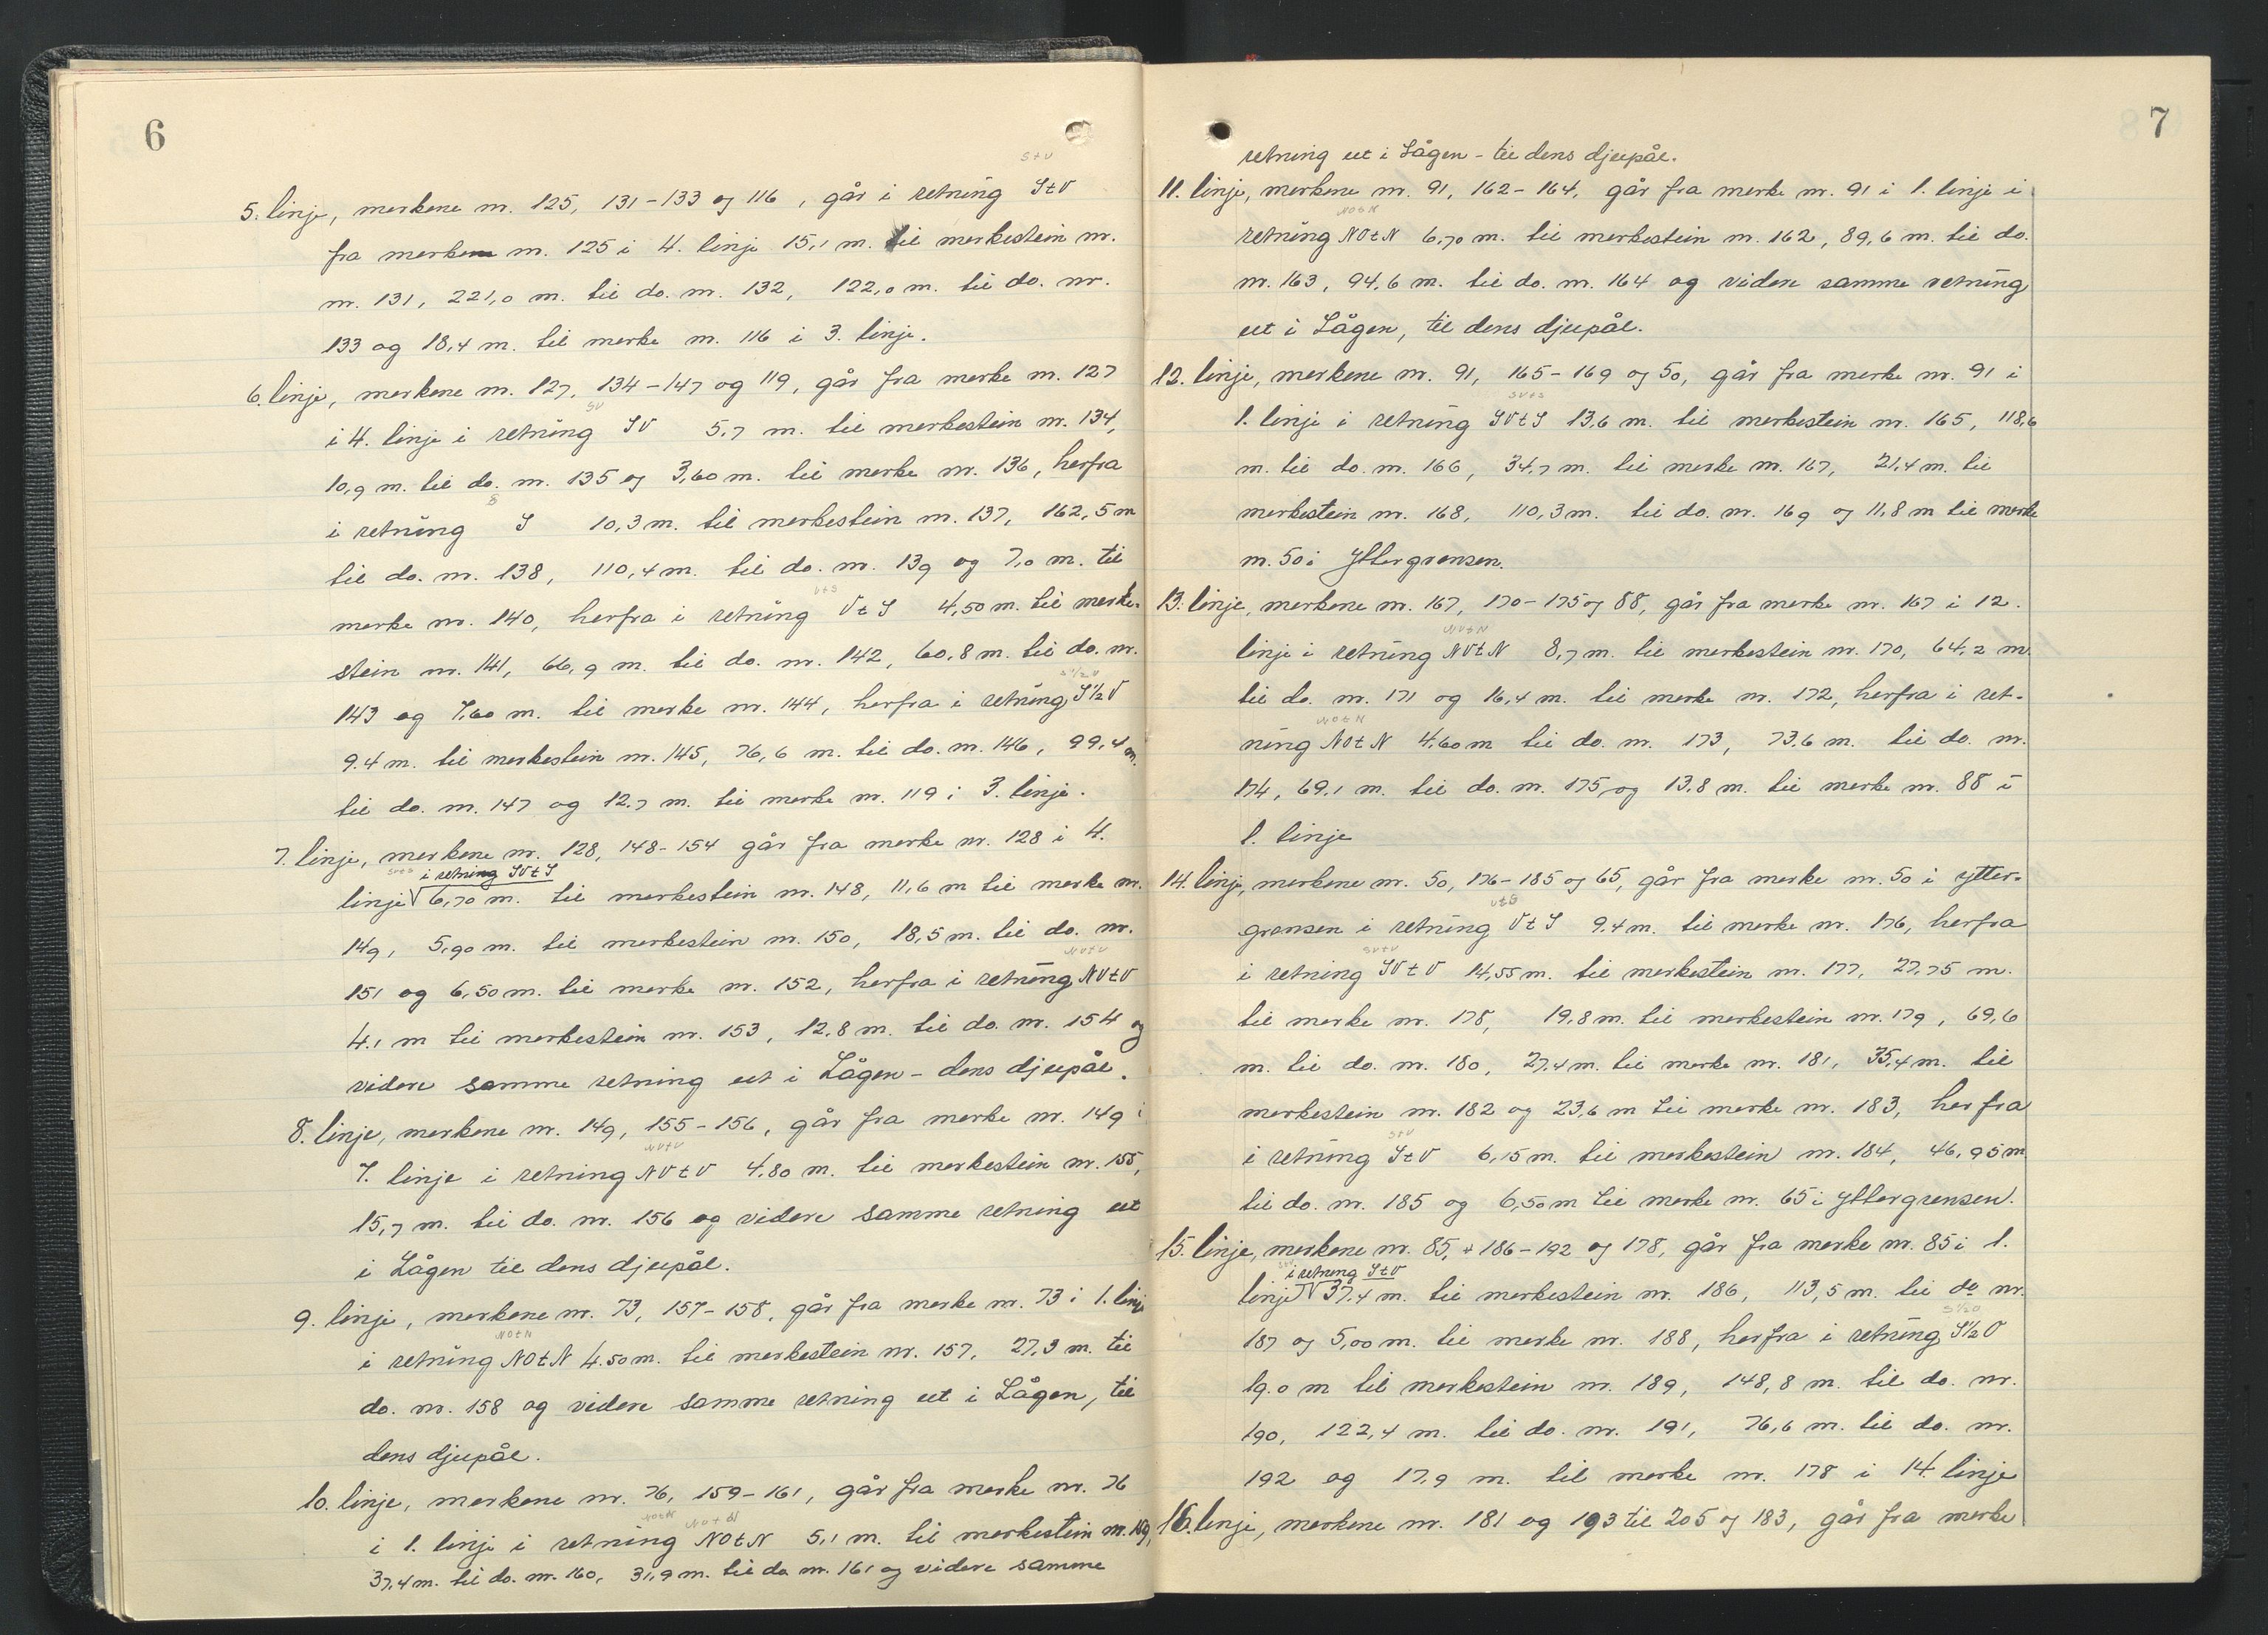 6
StV
5. linje, merkene nr. 125, 131-133 og 116, går i retning StV
fra merke nr. 125 i 4. linje 15,1 m. til merkestein nr.
nr. 131, 221,0 m. til do. nr. 132, 122,0 m. til do. nr.
133 og 18,4 m. til merke nr. 116 i 3. linje.
6. linje, merkene nr. 127, 134-147 og 119, går fra merke nr. 127
SV
i 4. linje i retning SV 5,7 m. til merkestein nr. 134,
10,9 m. til do. nr. 135 og 3,60 m. til merke nr. 136, herfra
S
i retning S 10,3 m. til merkestein nr. 137, 162,5 m
til do. nr. 138, 110,4 m. til do. nr. 139 og 7,0 m. til
VtS
merke nr. 140, herfra i retning VtS 4,50 m. til merke-
stein nr. 141, 66,9 m. til do. nr. 142, 60,8 m. til do. nr.
S½V
143 og 7,60 m. til merke nr. 144, herfra i retning S½V
9.4 m. til merkestein nr. 145, 76,6 m. til do. nr. 146, 99,4 m.
til do. nr. 147 og 12.7 m. til merke nr. 119 i 3. linje.
7. linje, merkene nr. 128, 148-154 går fra merke nr. 128 i 4.
SVtS i retning SVtS
linje √ 6,70 m. til merkestein nr. 148, 11,6 m til merke nr.
149, 5,90 m. til merkestein nr. 150, 18,5 m. til do. nr.
NVtV
151 og 6,50 m. til merke nr. 152, herfra i retning NVtV
4.1 m til merkestein nr. 153, 12,8 m. til do. nr. 154 og
videre samme retning ut i Lågen - dens djupål.
8. linje, merkene nr. 149, 155-156, går fra merke nr. 149 i
NVtV
7. linje i retning NVtV 4,80 m. til merkestein nr. 155,
15,7 m. til do. nr. 156 og videre samme retning ut
i Lågen til dens djupål.
9. linje, merkene nr. 73, 157-158, går fra merke nr. 73 i 1. linje
NOtN
i retning NOtN 4.50 m. til merkestein nr. 157, 27,3 m. til
do. nr. 158 og videre samme retning ut i Lågen, til
dens djupål.
10. linje, merkene nr. 76, 159-161, går fra merke nr. 76
NOtN NOtN
i 1. linje i retning NOtN 5,1 m. til merkestein nr. 159,
37,4 m. til do. nr. 160, 31,9 m. til do nr. 161 og videre samme
7
retning ut i Lågen - til dens djupål.
11. linje, merkene nr. 91, 162-164, går fra merke nr. 91 i 1. linje i
NOtN
retning NOtN 6,70 m. til merkestein nr. 162, 89,6 m. til do.
nr. 163, 94,6 m. til do. nr. 164 og videre samme retning
ut i Lågen, til dens djupål.
12. linje, merkene nr. 91, 165-169 og 50, går fra merke nr. 91 i
SVtS
1. linje i retning SVtS 13,6 m. til merkestein nr. 165, 118,6
m. til do. nr. 166, 34,7 m. til merke nr. 167, 21,4 m. til
merkestein nr. 168, 110,3 m. til do. nr. 169 og 11,8 m til merke
nr. 50 i Yttergrensen.
13. linje, merkene nr. 167, 170-175 og 88, går fra merke nr. 167 i 12.
NVtN
linje i retning NVtN 8,7 m. til merkestein nr. 170, 64,2 m
til do. nr. 171 og 16,4 m. til merke nr. 172, herfra i ret-
NOtN
ning NOtN 4,60 m til do. nr. 173, 73,6 m. til do. nr.
174, 69,1 m. til do. nr. 175 og 13,8 m. til merke nr. 88 i
1. linje
14. linje, merkene nr. 50, 176-185 og 65, går fra merke nr. 50 i ytter-
VtS
grensen i retning VtS 9,4 m. til merke nr. 176, herfra
SVtV
i retning SVtV 14,55 m. til merkestein nr. 177, 27,75 m.
til merke nr. 178, 19,8 m. til merkestein nr. 179, 69,6
m. til do. nr. 180, 27,4 m. til merke nr. 181, 35,4 m. til
merkestein nr. 182 og 23,6 m til merke nr. 183, herfra
StV
i retning StV 6,15 m. til merkestein nr. 184, 46,95 m
til do. nr. 185 og 6,50 m til merke nr. 65 i Yttergrensen.
15. linje, merkene nr. 85, + 186-192 og 178, går fra merke nr. 85 i 1.
i retning StV
linje √ 37.4 m. til merkestein nr. 186, 113,5 m. til do nr.
S½O
187 og 5,00 m. til merke nr. 188, herfra i retning S½O
19.0 m til merkestein nr. 189, 148,8 m. til do. nr.
190, 122,4 m. til do. nr. 191, 76,6 m. til do. nr.
192 og 17,9 m. til merke nr. 178 i 14. linje
16. linje, merkene nr. 181 og 193 til 205 og 183, går fra merke